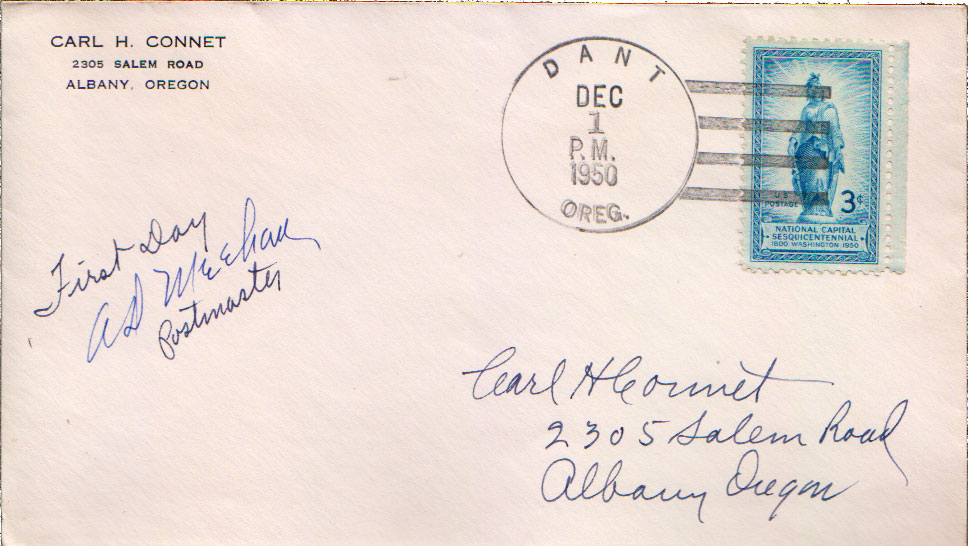 CARL H. CONNET
2305 SALEM ROAD
ALBANY, OREGON
DANT
DEC
1
P.M.
1950
OREG.
U.S.
POSTAGE
3¢
NATIONAL CAPITAL
SESQUICENTENNIAL
1800 WASHINGTON 1950
First Day
AD Meehan
Postmaster
Carl H Connet
2305 Salem Road
Albany Oregon